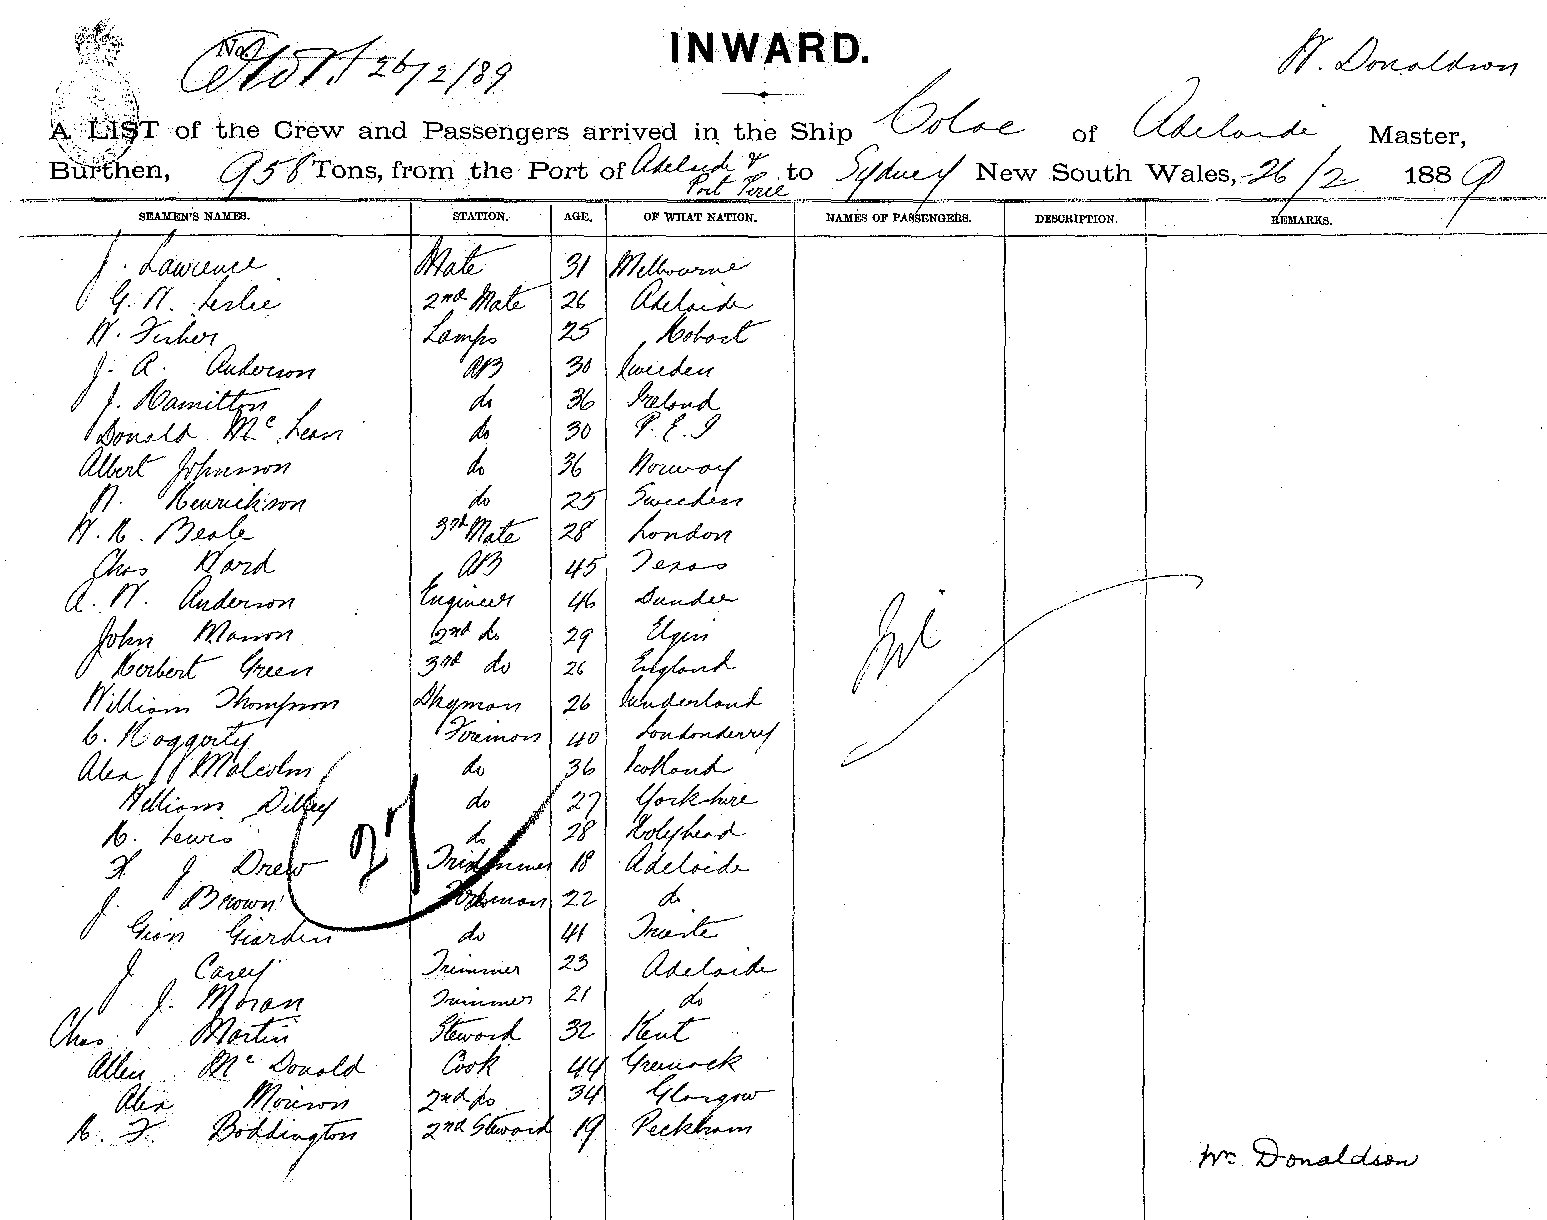 INWARD.
No. 26/2/89
W. Donaldson
A LIST of the Crew and Passengers arrived in the Ship Colac of Adelaide Master,
Burthen, 958 Tons, from the Port of Adelaide & Port Pirie to Sydney New South Wales, 26/2 1889
SEAMEN'S NAMES. STATION. AGE. OF WHAT NATION. NAMES OF PASSENGERS. DESCRIPTION. REMARKS.
J. Lawrence Mate 31 Melbourne
G. W. Leslie 2nd Mate 26 Adelaide
W. Fisher Lamps 25 Hobart
J. A. Anderson AB 30 Sweeden
J. Hamilton do 36 Ireland
Donald Mc Lean do 30 P. E. I
Albert Johnson do 36 Norway
N. Henrickson do 25 Sweeden
W. H. Beale 3rd Mate 28 London
Chas Ward AB 45 Texas
A. W. Anderson Engineer 46 Dundee
John Manon 2nd do 29 Elgin
Herbert Green 3rd do 26 England
William Thompson Dkyman 26 Sunderland
C. Haggerty Fireman 40 Londonderry
Nil
Alex Malcolm do 36 Scotland
William Dilley do 27 Yorkshire
H. Lewis do 28 Holyhead
27
J Drew Trimmer 18 Adelaide
J. Brown Fireman 22 do
Gian Giarden do 41 Trieste
J Carey Trimmer 23 Adelaide
J. Moran Trimmer 21 do
Chas Martin Steward 32 Kent
Allen Mc Donald Cook 44 Greenock
Alex Morison 2nd do 34 Glasgow
H. F. Boddington 2nd Steward 19 Peckham
Wm Donaldson